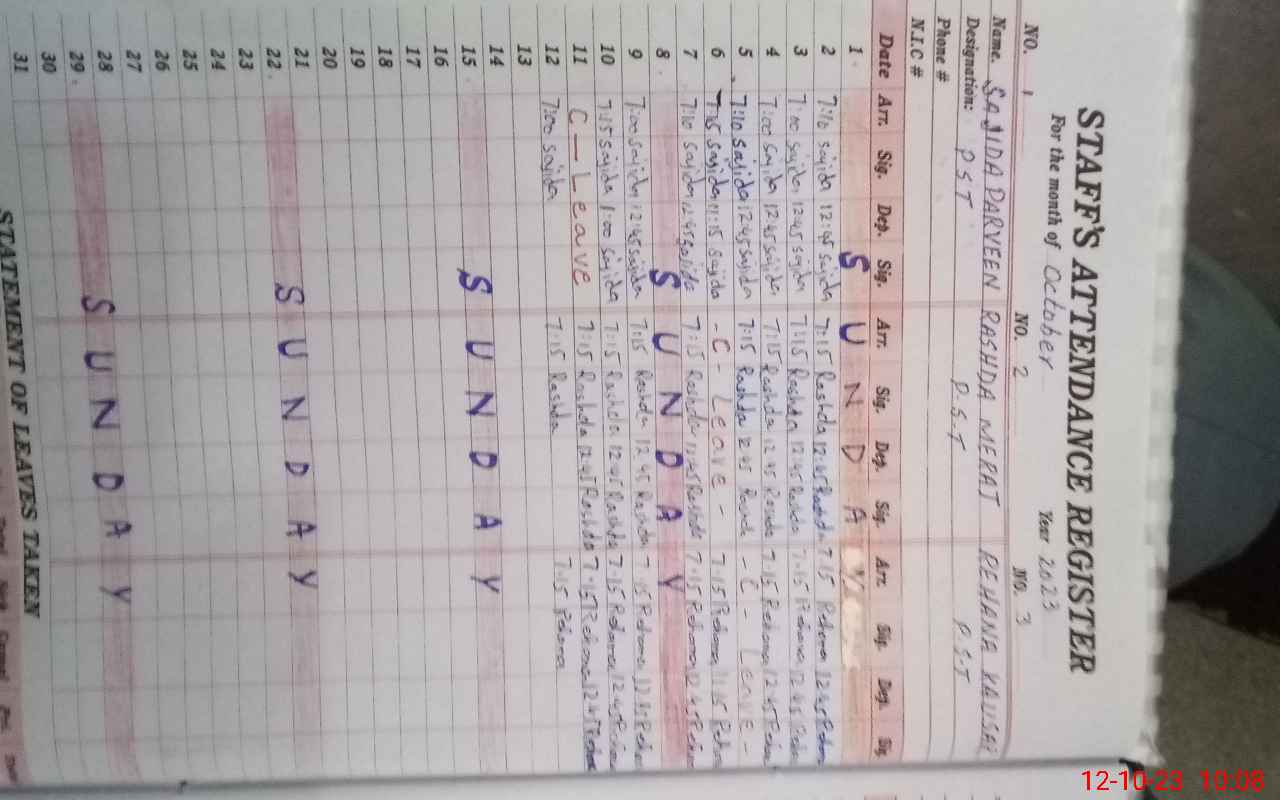 STAFF'S ATTENDANCE REGISTER
For the month of October Year 2023
NO. 1 NO. 2 NO. 3
Name. SAJIDA PARVEEN RASHDA MERAJ REHANA KAUSAR
Designation: P.S.T P.S.T P.S.T
Phone #
N.I.C #
Date Arr. Sig. Dep. Sig. Arr. Sig. Dep. Sig. Arr. Sig. Dep. Sig.
1 S U N D A Y
2 7:10 Sajida 12:45 Sajida 7:15 Rashda 12:45 Rashda 7:15 Rehana 12:45 Rehana
3 7:00 Sajida 12:45 Sajida 7:15 Rashda 12:45 Rashda 7:15 Rehana 12:45 Rehana
4 7:00 Sajida 12:45 Sajida 7:15 Rashda 12:45 Rashda 7:15 Rehana 12:45 Rehana
5 7:10 Sajida 12:45 Sajida 7:15 Rashda 12:45 Rashda - C - Leave -
6 7:15 Sajida 11:15 Sajida - C - Leave - 7:15 Rehana 11:15 Rehana
7 7:10 Sajida 12:45 Sajida 7:15 Rashda 12:45 Rashda 7:15 Rehana 12:45 Rehana
8 S U N D A Y
9 7:00 Sajida 12:45 Sajida 7:15 Rashda 12:45 Rashda 7:15 Rehana 12:45 Rehana
10 7:15 Sajida 1:00 Sajida 7:15 Rashda 12:45 Rashda 7:15 Rehana 12:45 Rehana
11 C - Leave 7:15 Rashda 12:45 Rashda 7:15 Rehana 12:45 Rehana
12 7:00 Sajida 7:15 Rashda 7:15 Rehana
13
14
15 S U N D A Y
16
17
18
19
20
21
22 S U N D A Y
23
24
25
26
27
28
29 S U N D A Y
30
31
STATEMENT OF LEAVES TAKEN
12-10-23 10:08